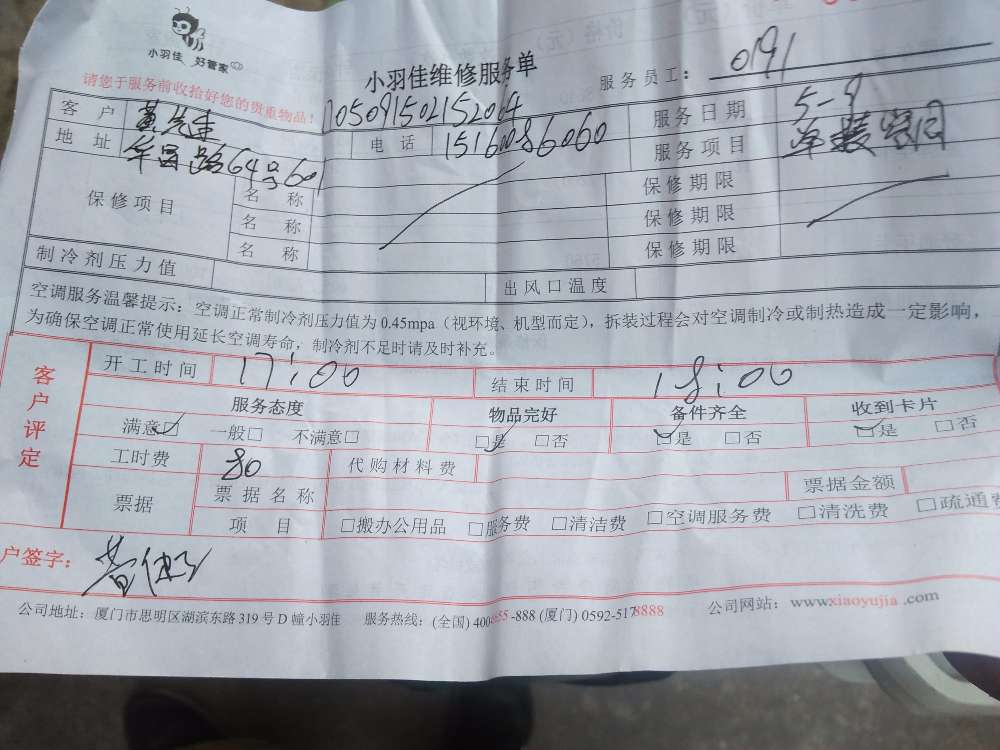 小羽佳 好管家
小羽佳维修服务单
服务员工: 0191
请您于服务前收拾好您的贵重物品!
1705091502152064
客户 黄先生 电话 15160086060 服务日期 5-9
地址 华昌路64号601 服务项目 单装空调
保修项目 名称 保修期限
名称 保修期限
名称 保修期限
制冷剂压力值 出风口温度
空调服务温馨提示: 空调正常制冷剂压力值为 0.45mpa (视环境、机型而定), 拆装过程会对空调制冷或制热造成一定影响,
为确保空调正常使用延长空调寿命, 制冷剂不足时请及时补充。
客户评定
开工时间 17:00 结束时间 18:00
服务态度 物品完好 备件齐全 收到卡片
满意☑ 一般□ 不满意□ ☑是 □否 ☑是 □否 ☑是 □否
工时费 80 代购材料费
票据 票据名称 票据金额
项目 □搬办公用品 □服务费 □清洁费 □空调服务费 □清洗费 □疏通费
户签字:
公司地址: 厦门市思明区湖滨东路 319 号 D 幢小羽佳 服务热线: (全国) 400-8855-888 (厦门) 0592-5178888 公司网站: www.xiaoyujia.com